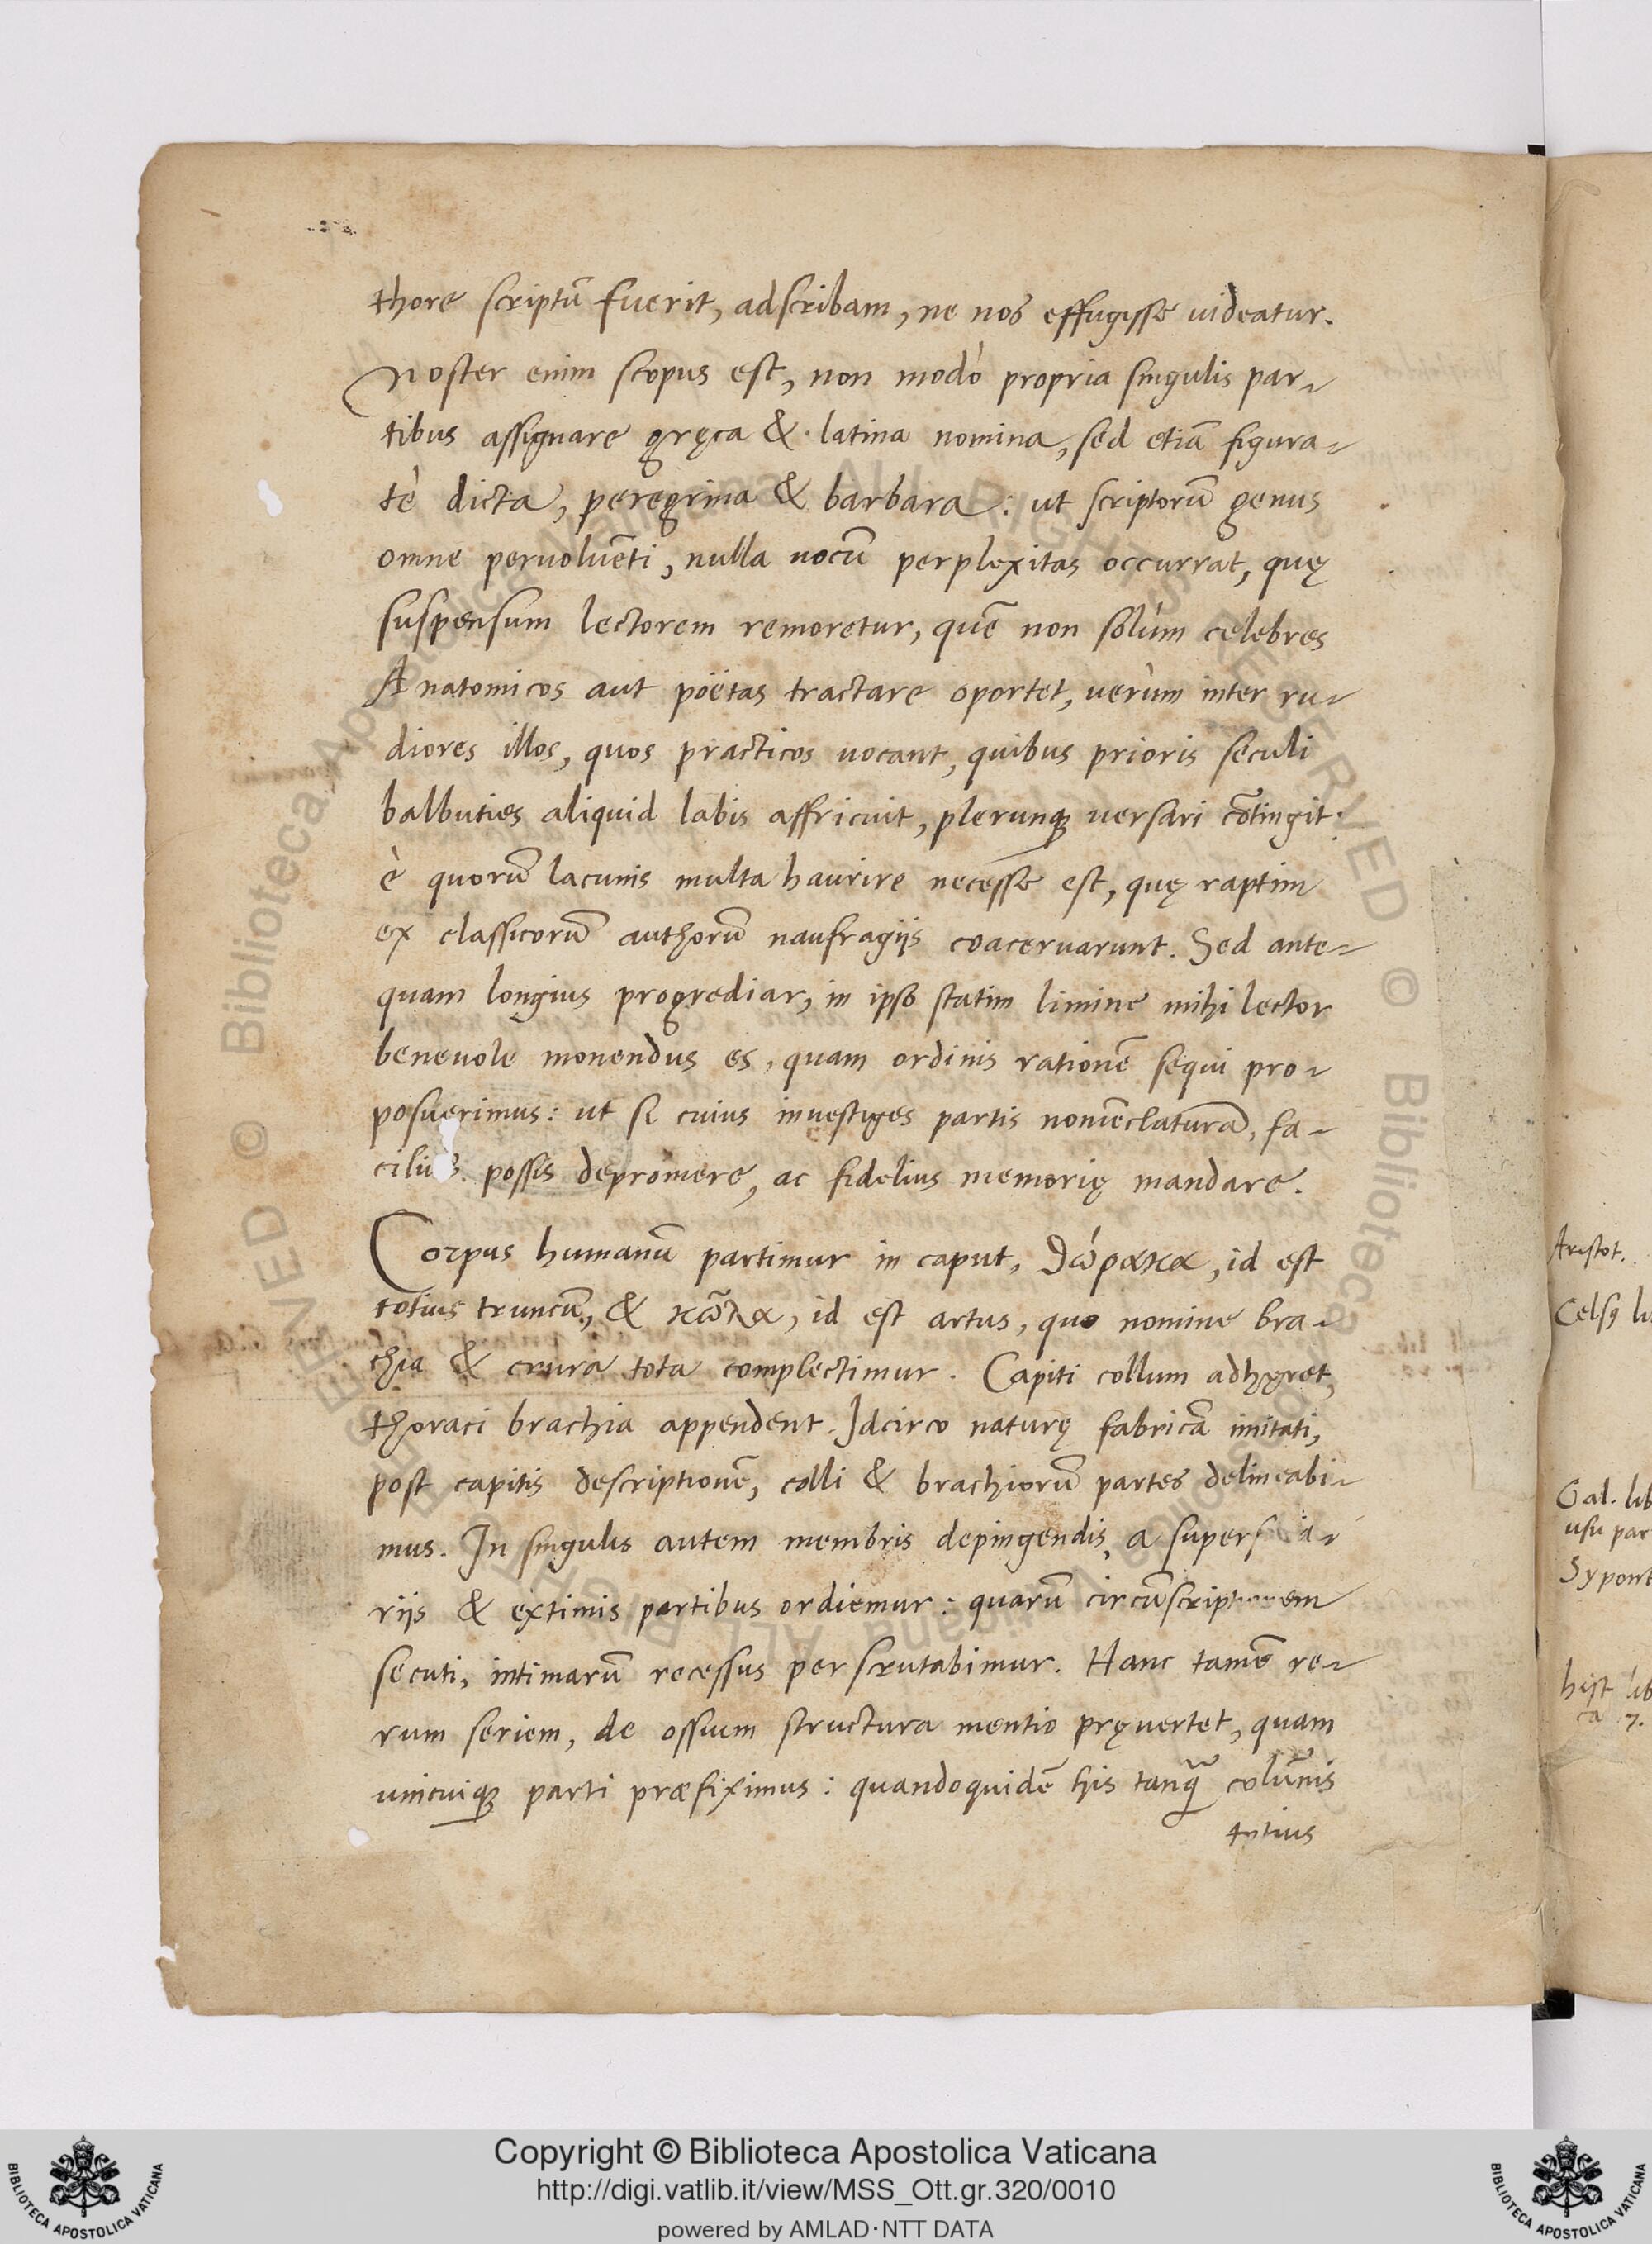 thore scriptũ fuerit, adscribam, ne nos effugisse uideatur.
Noster enim scopus est, non modò propria singulis par-
tibus assignare gręca & latina nomina, sed etiã figura-
tè dicta, peregrina & barbara: ut scriptorũ genus
omne peruoluẽti, nulla uocũ perplexitas occurrat, quę
suspensum lectorem remoretur, quẽ non solùm celebres
Anatomicos aut poëtas tractare oportet, uerùm inter ru-
diores illos, quos practicos uocant, quibus prioris seculi
balbuties aliquid labis affricuit, plerunq; uersari cõtingit.
è quorũ lacunis multa haurire necesse est, quę raptim
ex classicorũ authorũ naufragijs coaceruarunt. Sed ante-
quam longius progrediar, in ipso statim limine mihi lector
beneuole monendus es, quam ordinis rationẽ sequi pro-
posuerimus: ut si cuius inuestiges partis nomẽclaturã, fa-
cilius possis depromere, ac fidelius memorię mandare.
Corpus humanũ partimur in caput, θώρακα, id est
totius truncũ, & κῶλα, id est artus, quo nomine bra-
chia & crura tota complectimur. Capiti collum adhęret,
thoraci brachia appendent. Idcirco naturę fabricã imitati,
post capitis descriptionẽ, colli & brachiorũ partes delineabi-
mus. In singulis autem membris depingendis, a super
rijs & extimis partibus ordiemur: quarũ circũscriptionem
secuti, intimarũ recessus perscrutabimur. Hanc tamẽ re-
rum seriem, de ossium structura mentio pręuertet, quam
unicuiq; parti præfiximus: quandoquidẽ his tanq̃ colũnis
totius
Aristot.
Cels9 li
Gal. lib
usu par
Sypont
hist lib
ca 7.
Copyright © Biblioteca Apostolica Vaticana
http://digi.vatlib.it/view/MSS_Ott.gr.320/0010
powered by AMLAD·NTT DATA
BIBLIOTECA APOSTOLICA VATICANA
BIBLIOTECA APOSTOLICA VATICANA